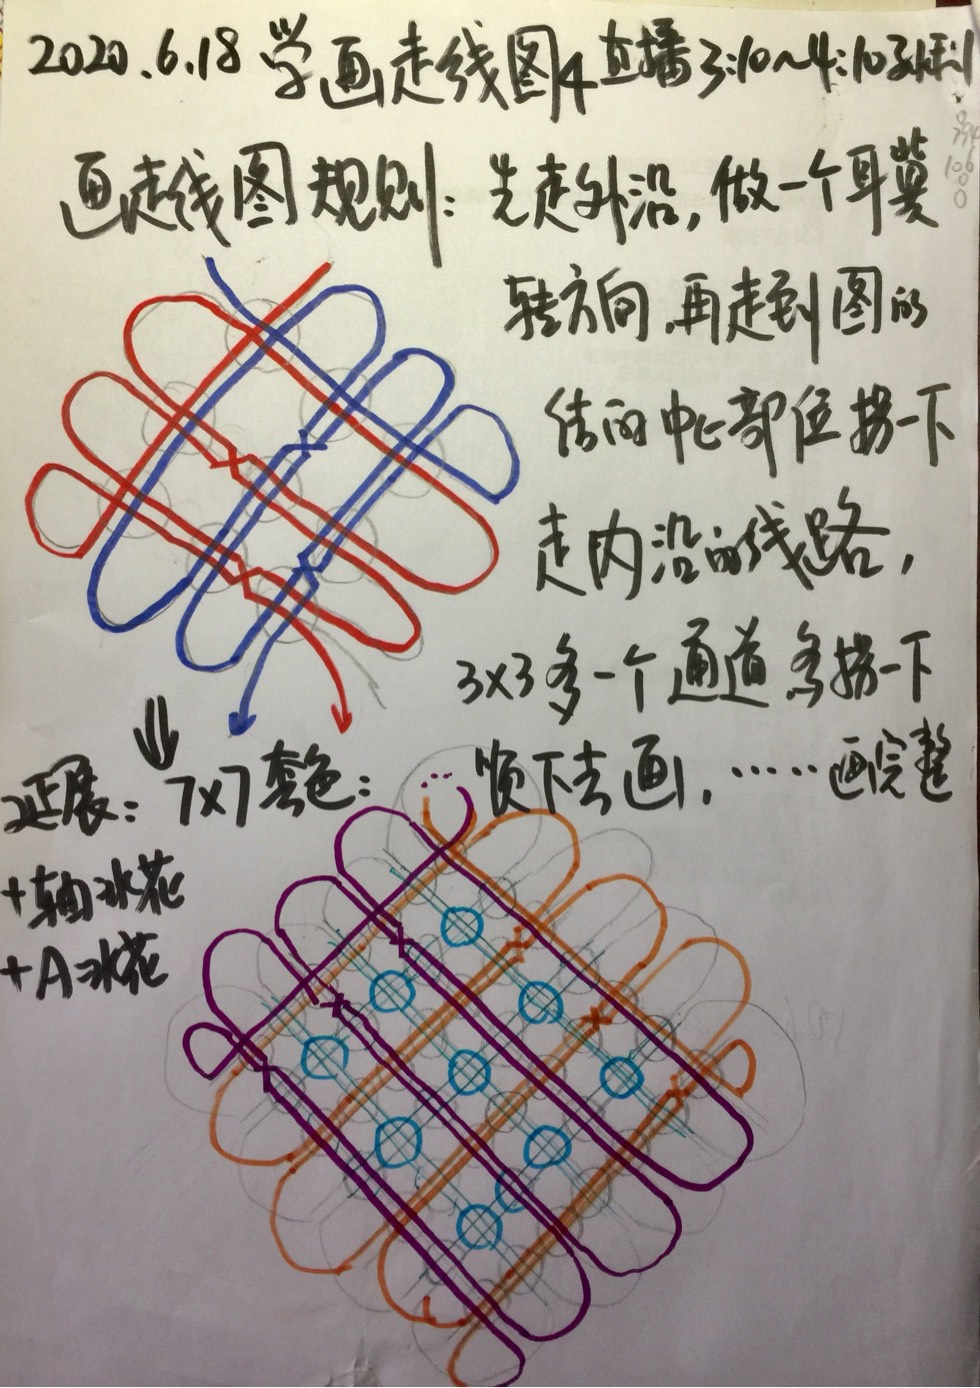 2020.6.18 学画走线图4 直播3:10~4:10
画走线图规则: 先走外沿, 做一个耳翼
转方向,再走到图的
结的中心部位拐一下
走内沿的线路,
3×3多一个通道多拐一下
顺下去画, ······画完整
延展: 7×7套色:
+轴冰花
+A冰花